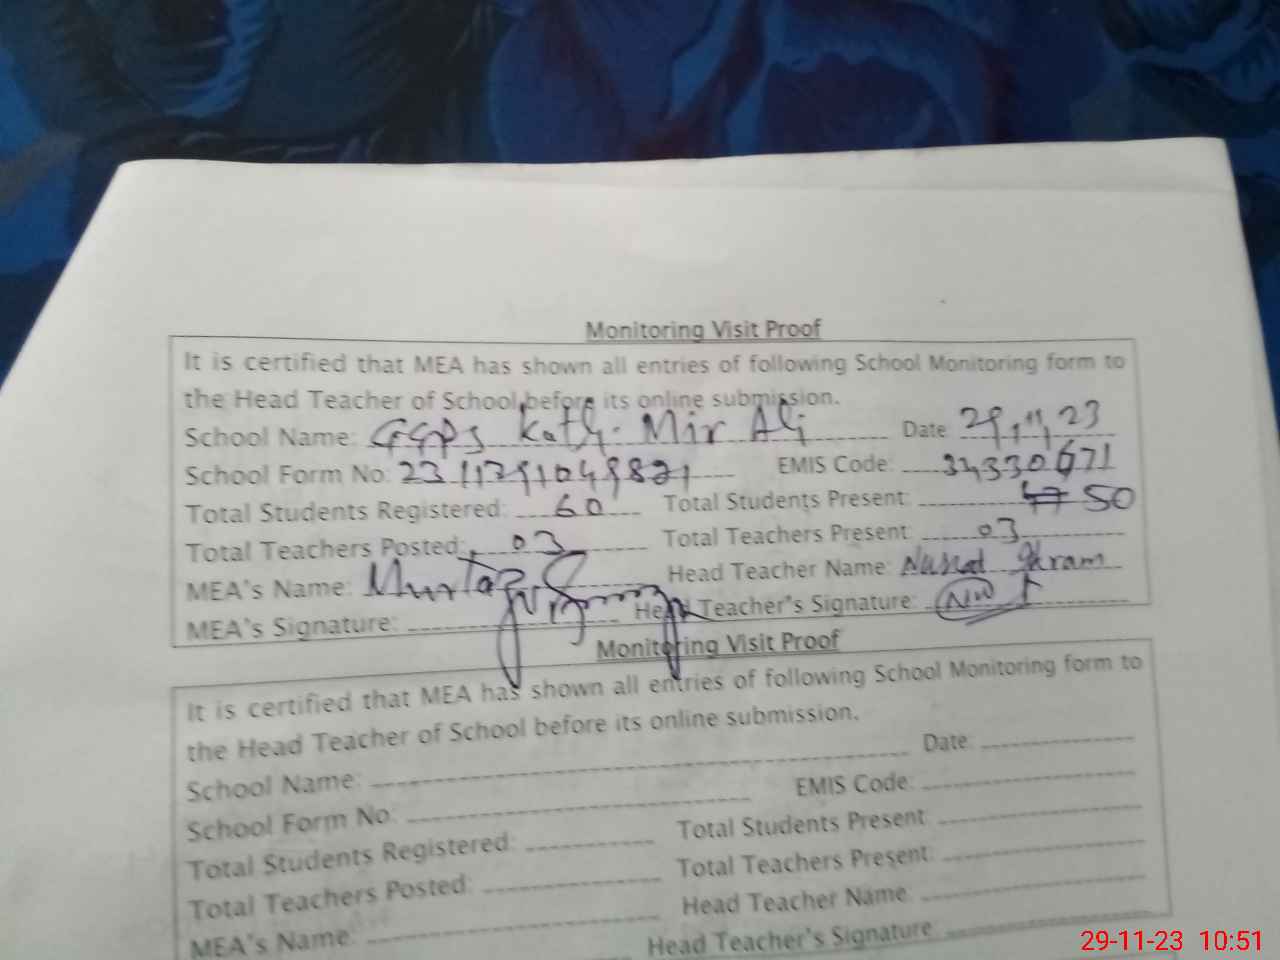 Monitoring Visit Proof
It is certified that MEA has shown all entries of following School Monitoring form to
the Head Teacher of School before its online submission.
School Name: GGPS Kath. Mir Ali Date: 29,11,23
School Form No: EMIS Code: 34330671
Total Students Registered: 60 Total Students Present: 50
Total Teachers Posted: 03 Total Teachers Present: 03
MEA's Name: Murtaza Head Teacher Name: Nusrat Ikram
MEA's Signature: Head Teacher's Signature:
Monitoring Visit Proof
It is certified that MEA has shown all entries of following School Monitoring form to
the Head Teacher of School before its online submission.
School Name: Date:
School Form No: EMIS Code:
Total Students Registered: Total Students Present:
Total Teachers Posted: Total Teachers Present:
MEA's Name: Head Teacher Name:
Head Teacher's Signature:
29-11-23 10:51